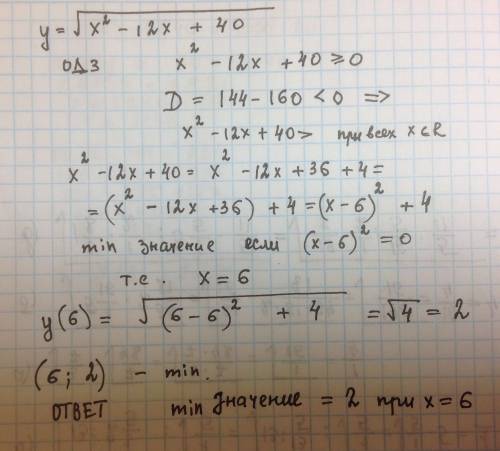 y = √(x² - 12x + 40)
ОДЗ x² - 12x + 40 ≥ 0
D = 144 - 160 < 0 =>
x² - 12x + 40 > при всех x ∈ R
x² - 12x + 40 = x² - 12x + 36 + 4 =
= (x² - 12x + 36) + 4 = (x - 6)² + 4
min значение если (x - 6)² = 0
т.е. x = 6
y(6) = √((6 - 6)² + 4) = √4 = 2
(6; 2) - min.
ОТВЕТ min значение = 2 при x = 6